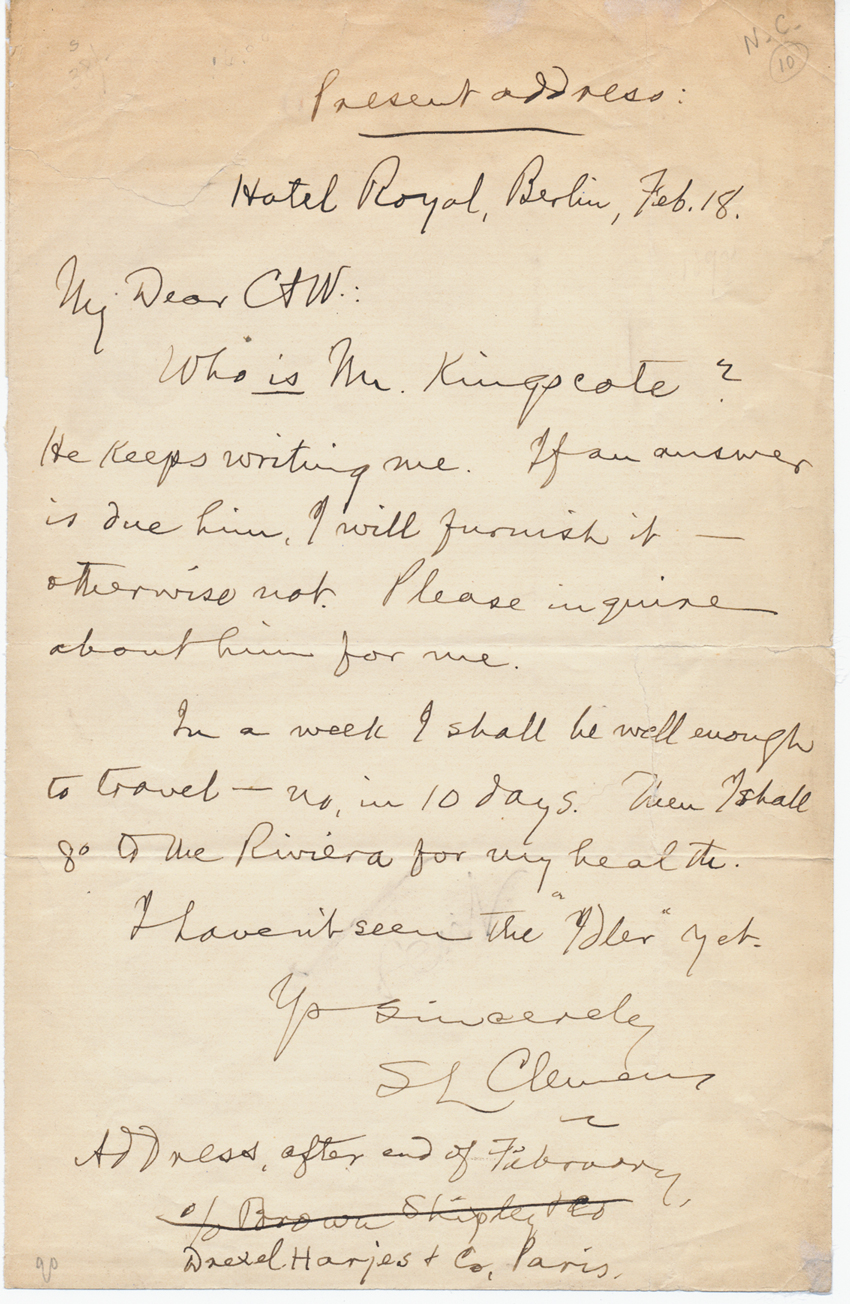 N.C.
10
Present address:
Hotel Royal, Berlin, Feb. 18.
My Dear C&W.:
Who is Mr. Kingscote?
He keeps writing me. If an answer
is due him, I will furnish it —
otherwise not. Please inquire
about him for me.
In a week I shall be well enough
to travel — no, in 10 days. Then I shall
go to the Riviera for my health.
I haven't seen the "Idler" yet.
Ys sincerely
SL Clemens
Address, after end of February,
c/o Brown Shipley & Co
Drexel Harjes & Co, Paris.